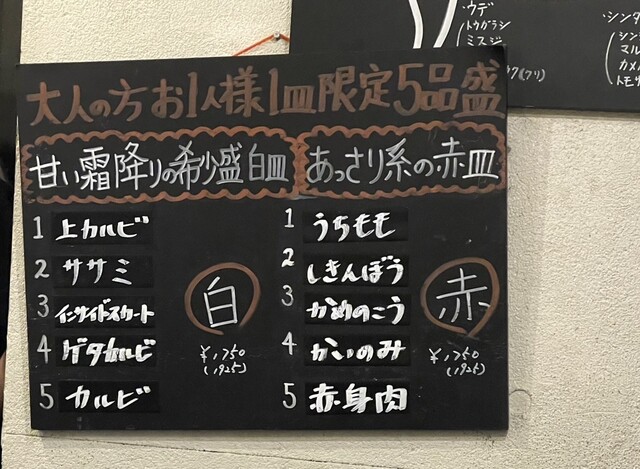 ・ウデ
トウガラシ
ミスジ
・シンタ
シン
マル
カメ
トモサ
大人の方お1人様1皿限定5品盛
甘い霜降りの希少盛白皿
あっさり系の赤皿
1 上カルビ
2 ササミ
3 インサイドスカート
4 ゲタカルビ
5 カルビ
白
¥1,750
(1925)
1 うちもも
2 しきんぼう
3 かめのこう
4 かいのみ
5 赤身肉
赤
¥1,750
(1925)